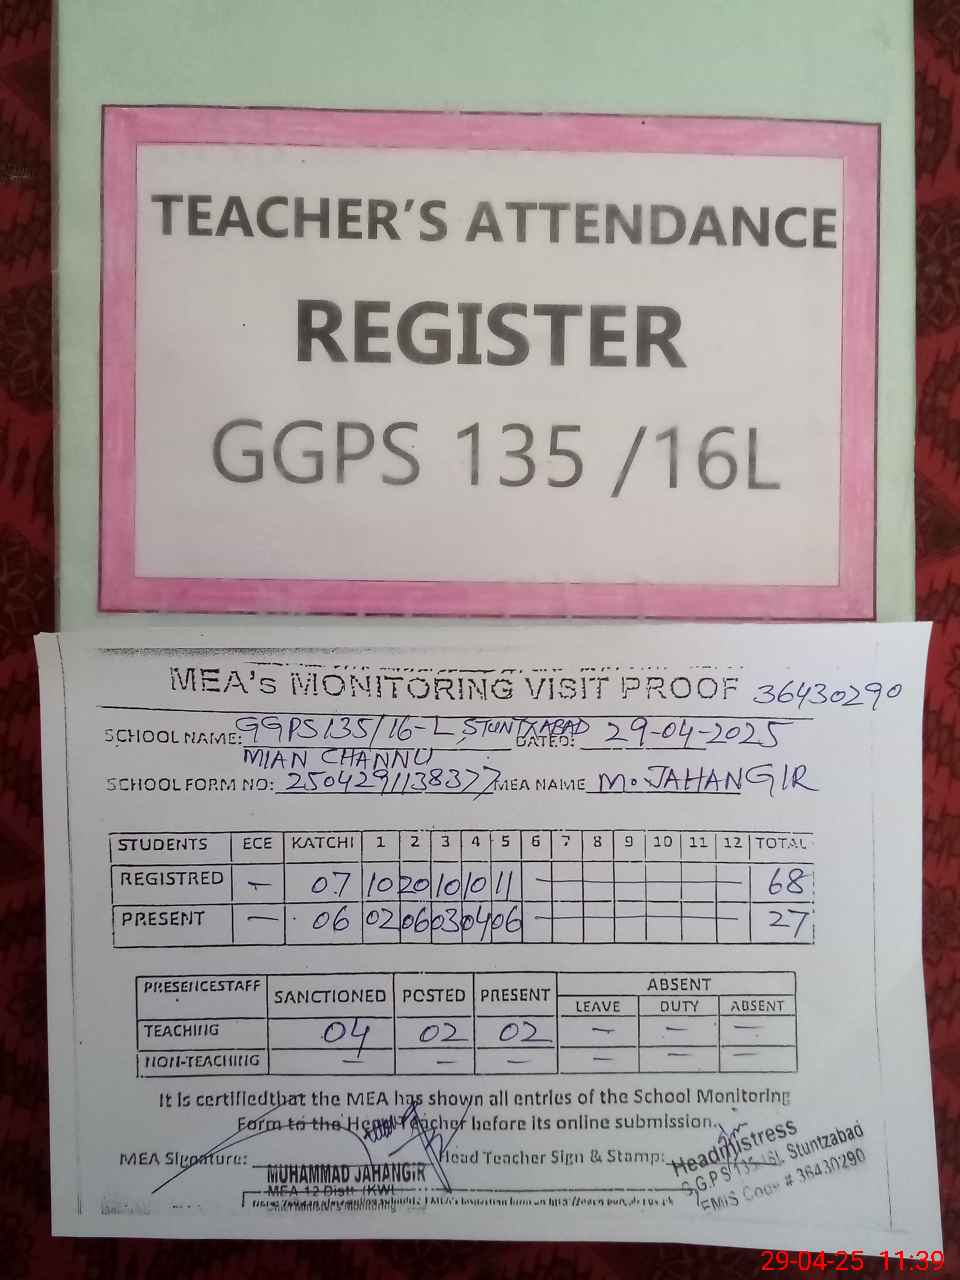 TEACHER'S ATTENDANCE
REGISTER
GGPS 135 /16L
MEA's MONITORING VISIT PROOF 36430290
SCHOOL NAME: GGPS 135/16-L, STUNTXABAD DATED: 29-04-2025
MIAN CHANNU
SCHOOL FORM NO: 2504291138377 MEA NAME M. JAHANGIR
STUDENTS ECE KATCHI 1 2 3 4 5 6 7 8 9 10 11 12 TOTAL
REGISTRED — 07 10 20 10 10 11 — 68
PRESENT — 06 02 06 03 04 06 — 27
PRESENCESTAFF SANCTIONED POSTED PRESENT ABSENT
LEAVE DUTY ABSENT
TEACHING 04 02 02 — — —
NON-TEACHING — — — — — —
It is certified that the MEA has shown all entries of the School Monitoring
Form to the Head Teacher before its online submission.
MEA Signature: Head Teacher Sign & Stamp:
MUHAMMAD JAHANGIR
MEA-12 Distt
Headmistress
G.G.P.S 135-16L Stuntzabad
EMIS Code # 36430290
29-04-25 11:39